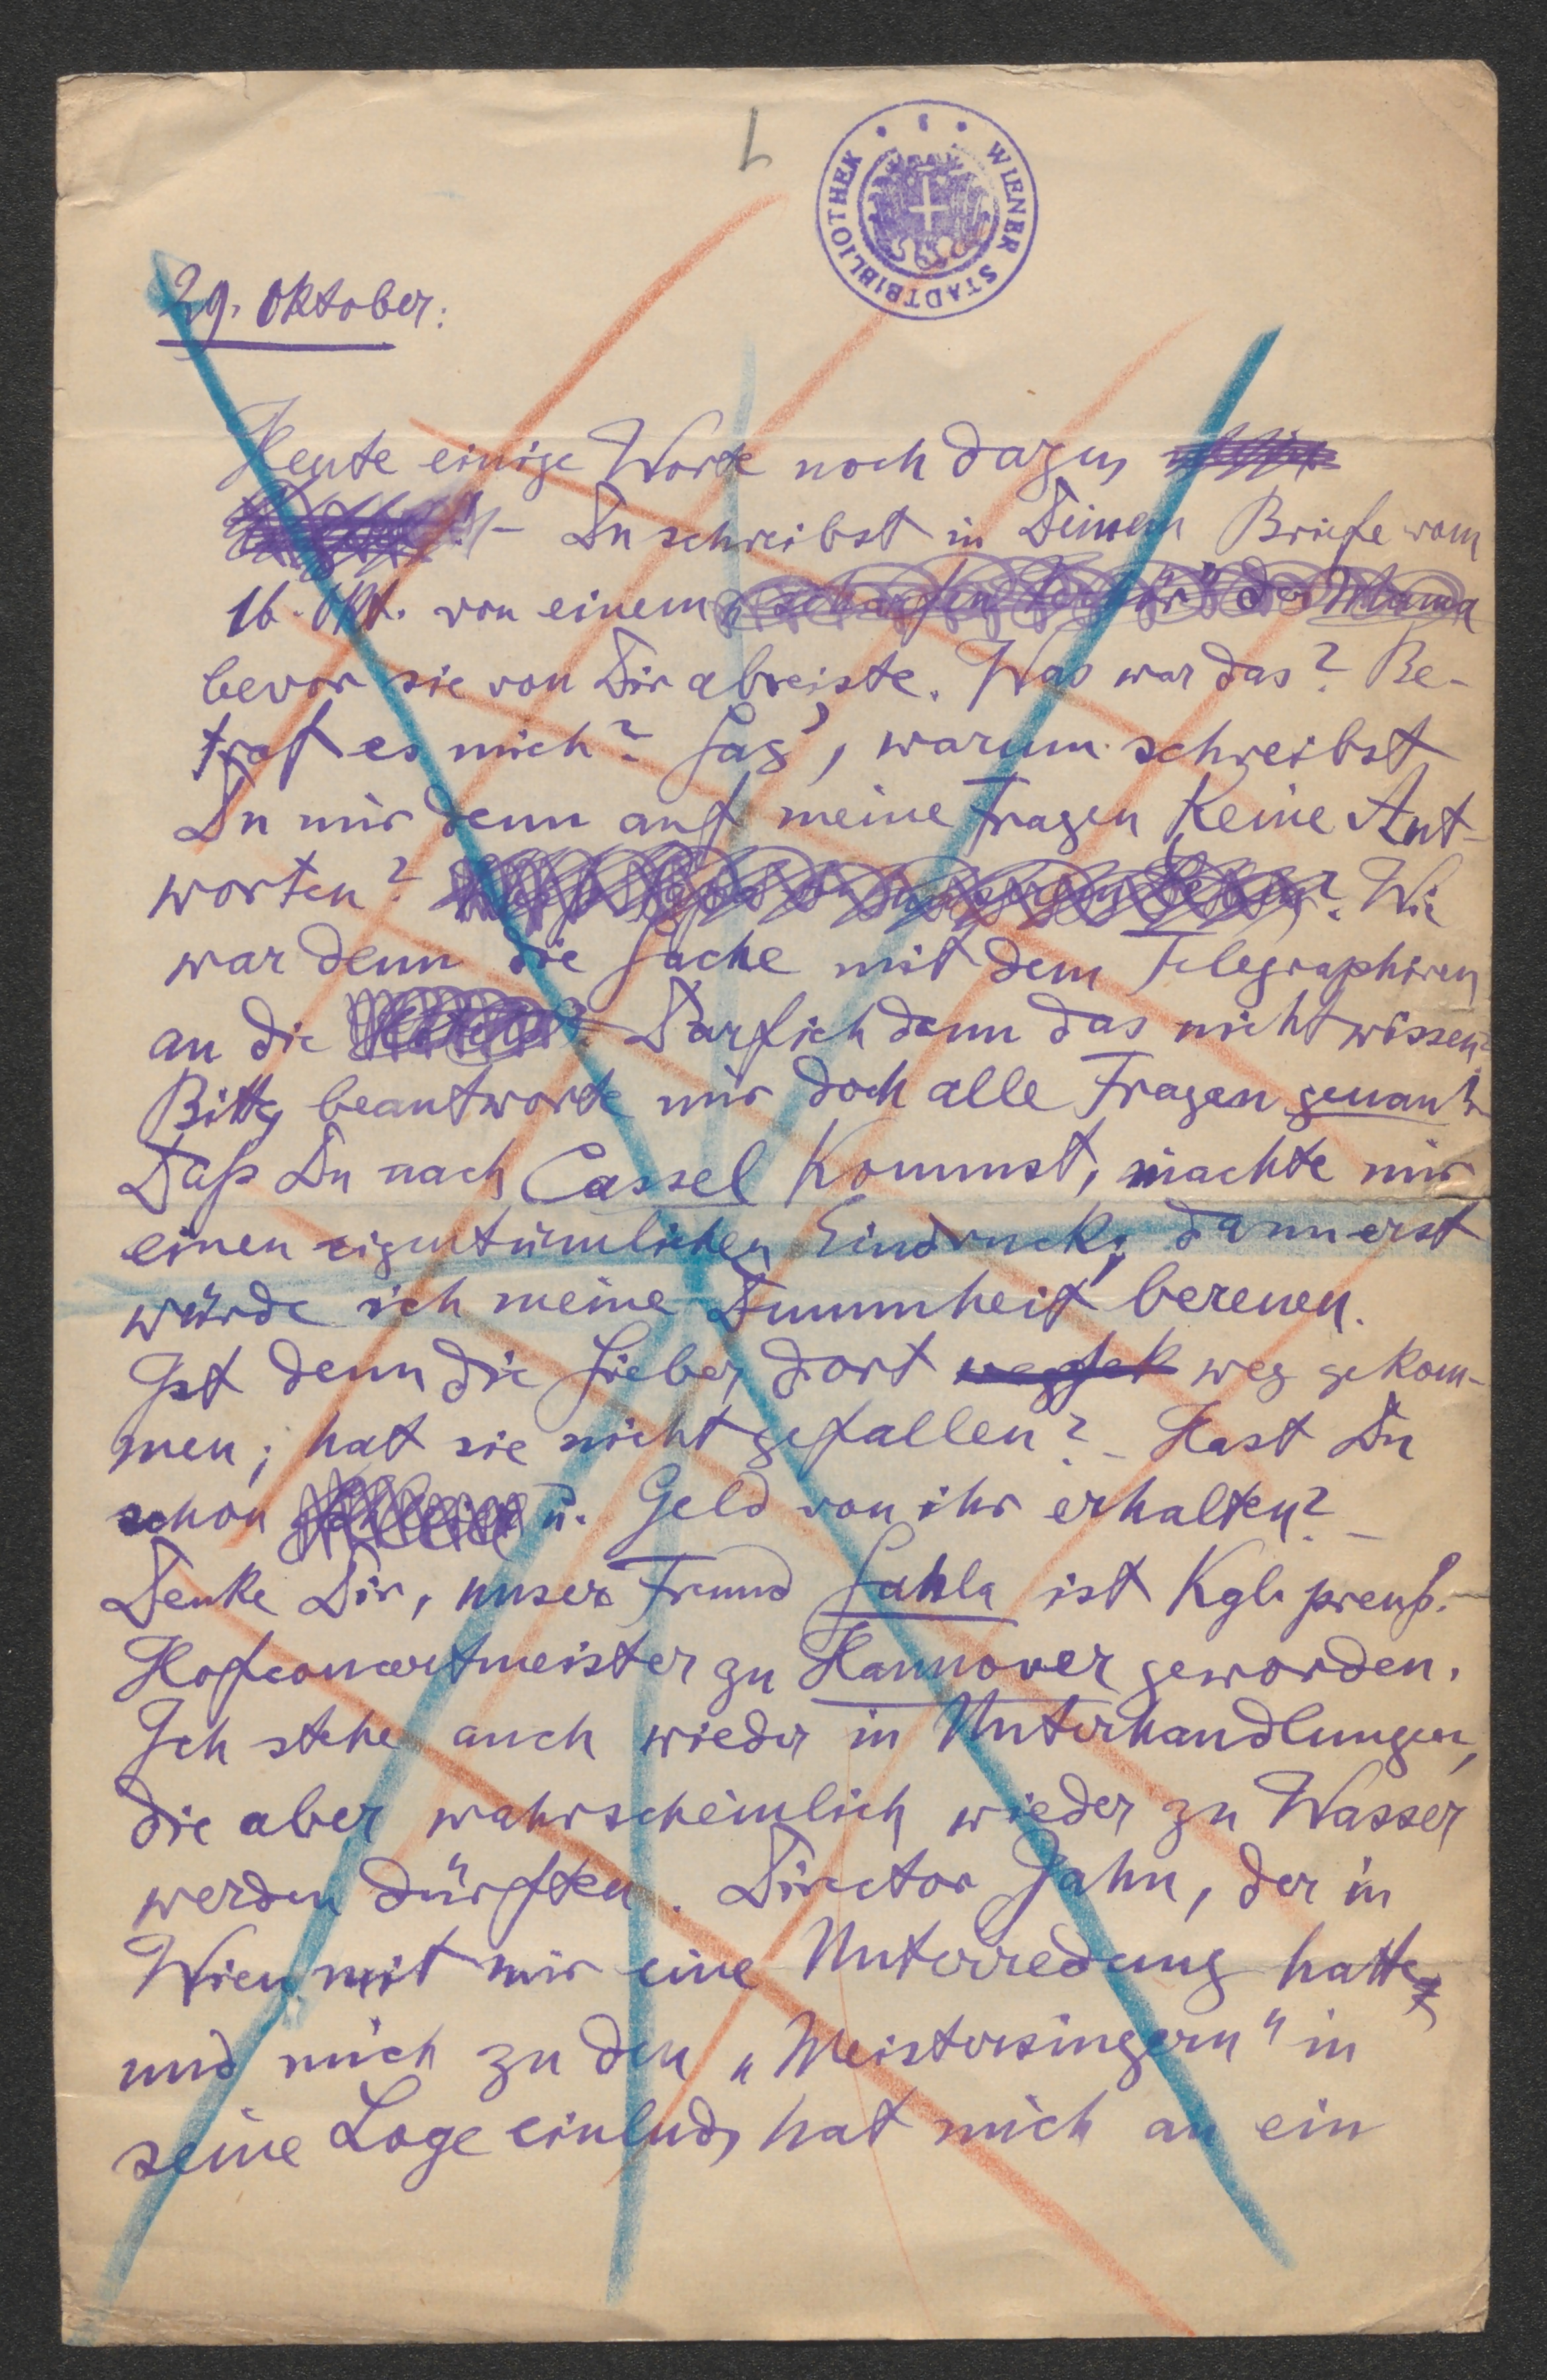 L
WIENER STADTBIBLIOTHEK
29. Oktober:
Heute einige Worte noch dazu,
– Du schreibst in Deinem Briefe vom
16. Okt. von einem „scharfen der Mama
bevor sie von Dir abreiste. Was war das? Be-
traf es mich? Sag', warum schreibst
Du mir denn auf meine Fragen keine Ant-
worten? Wie
war denn die Sache mit dem Telegraphiren
an die Darf ich denn das nicht wissen?
Bitte, beantworte mir doch alle Fragen genau!
Daß Du nach Cassel kommst, machte mir
einen eigentümlichen Eindruck; dann erst
würde ich meine Dummheit bereuen.
Ist denn die Lieber, dort weg gekom-
men; hat sie nicht gefallen? – Hast Du
schon u. Geld von ihr erhalten? –
Denke Dir, unser Freund Sahla ist Kgl. preuß.
Hofconcertmeister zu Hannover geworden.
Ich stehe auch wieder in Unterhandlungen,
die aber wahrscheinlich wieder zu Wasser
werden dürften. Director Jahn, der in
Wien mit mir eine Unterredung hatte,
und mich zu den „Meistersingern" in
seine Loge einlud, hat mich an ein